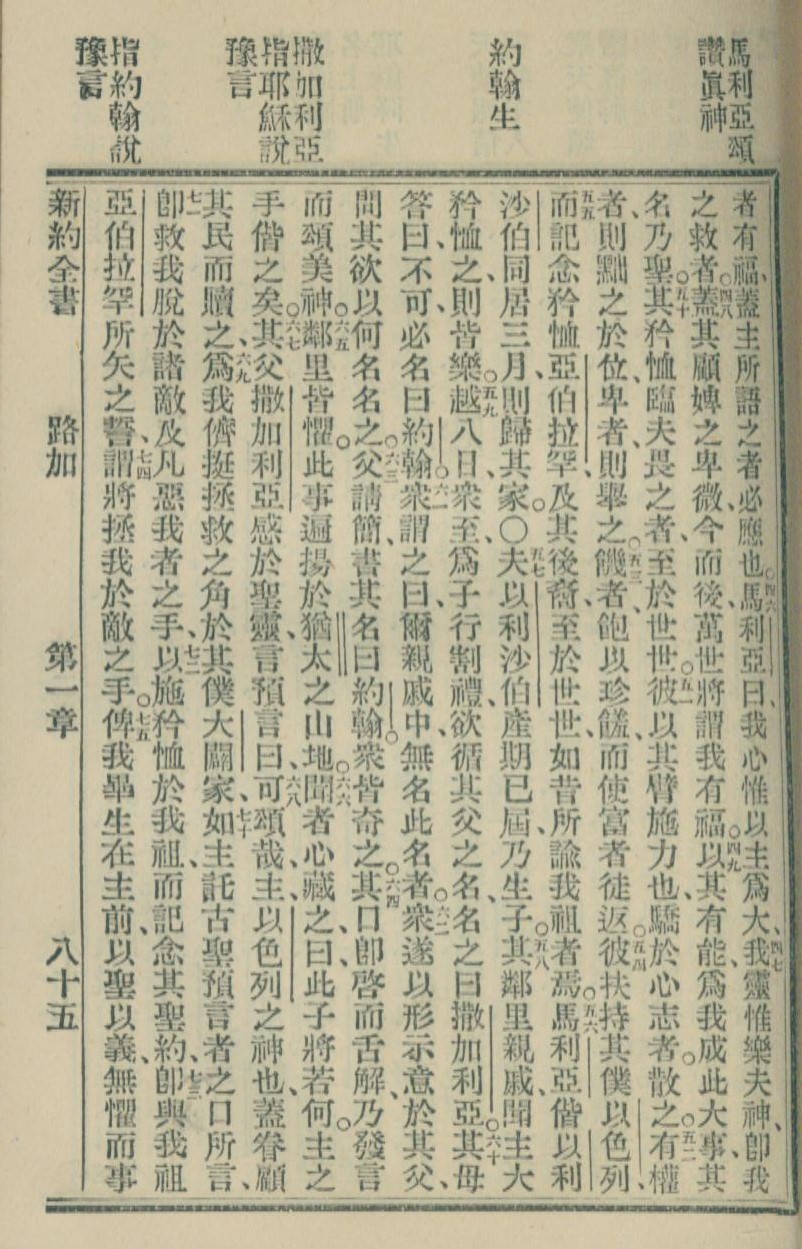 馬利亞頌
讚眞神
約翰生
撒加利亞
指耶穌說
豫言
指約翰說
豫言
者有福、蓋主所語之者必應也。四六馬利亞曰、我心惟以主爲大、四七我靈惟樂夫神、卽我
之救者。四八蓋其顧婢之卑微、今而後、萬世將謂我有福。四九以其有能、爲我成此大事、其
名乃聖。五十其矜恤臨夫畏之者、至於世世。五一彼以其臂施力也、驕於心志者、散之。五二有權
者、則黜之於位、卑者、則舉之。五三饑者、飽以珍饈、而使富者徒返。五四彼扶持其僕以色列、
五五而記念矜恤亞伯拉罕、及其後裔、至於世世、如昔所諭我祖者焉。五六馬利亞偕以利
沙伯同居三月、則歸其家。○五七夫以利沙伯產期已屆、乃生子。五八其鄰里親戚聞主大
矜恤之、則皆樂。五九越八日、衆至、爲子行割禮、欲循其父之名、名之曰撒加利亞。六十其母
答曰、不可、必名曰約翰。六一衆謂之曰、爾親戚中、無名此名者。六二衆遂以形示意於其父、
問其欲以何名名之。六三父請簡、書其名曰約翰。衆皆奇之。六四其口卽啓而舌解、乃發言
而頌美神。六五鄰里皆懼。此事遍揚於猶太之山地。六六聞者心藏之、曰、此子將若何。主之
手偕之矣。六七其父撒加利亞感於聖靈、言預言曰、六八可頌哉、主以色列之神也、蓋眷顧
其民而贖之、六九爲我儕挺拯救之角於其僕大闢家、七十如主託古聖預言者之口所言、
七一卽救我脫於諸敵及凡惡我者之手、七二以施矜恤於我祖、而記念其聖約、七三卽與我祖
亞伯拉罕所矢之誓、七四謂將拯我於敵之手。七五俾我畢生在主前、以聖以義、無懼而事
新約全書 路加 第一章 八十五